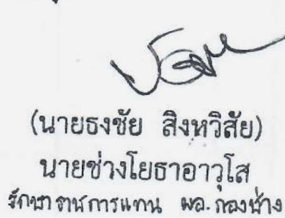 (นายธงชัย สิงหวิสัย)
นายช่างโยธาอาวุโส
รักษาราชการแทน ผอ.กองช่าง